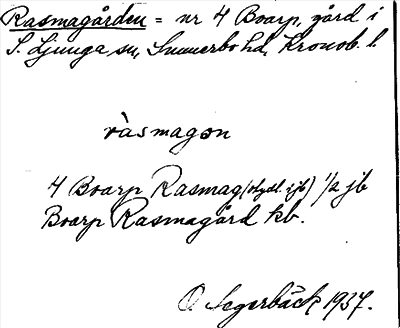 Rasmagården = nr 4 Boarp, gård i
S. Ljunga sn, Sunnerbo hd, Kronob. l.
ràsmagon
4 Boarp Rasmag (otydl. i jb) 1/2 jb
Boarp Rasmagård kb.
O Segerbäck 1937.